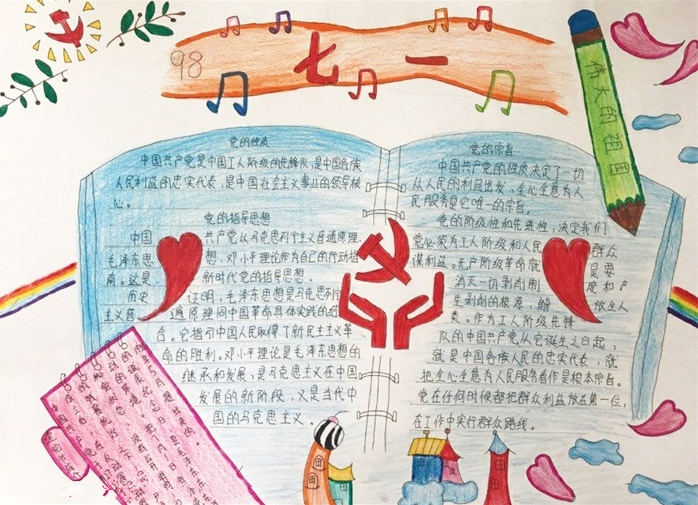 98
七一
伟大的祖国
党的性质
中国共产党是中国工人阶级的先锋队,是中国各族
人民利益的忠实代表,是中国社会主义事业的领导核
心。
党的指导思想
中国共产党从马克思列宁主义普通原理、
毛泽东思想、邓小平理论作为自己的行动指
南。这是新时代党的指导思想.
历史证明,毛泽东思想是马克思列
主义普通原理同中国革命具体实践的结
合。它指引中国人民取得了新民主主义革
命的胜利。邓小平理论是毛泽东思想的
继承和发展,是马克思主义在中国
发展的新阶段,又是当代中
国的马克思主义.
党的宗旨
中国共产党的性质决定了一切
从人民的利益出发,全心全意为人
民服务是它唯一的宗旨。
党的阶级性和先进性,决定我们
党必须为工人阶级和人民群众
谋利益。无产阶级革命就是要
消灭一切剥削制度和产
生剥削的根源,解放全人
类。作为工人阶级先锋
队的中国共产党从它诞生之日起,
就是中国各族人民的忠实代表,就
把全心全意为人民服务看作是根本宗旨。
党在任何时候都把群众利益放在第一位,
在工作中实行群众路线。